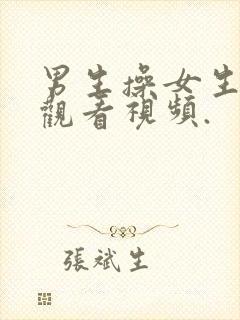 男生操女生
觀看視頻.
張斌生